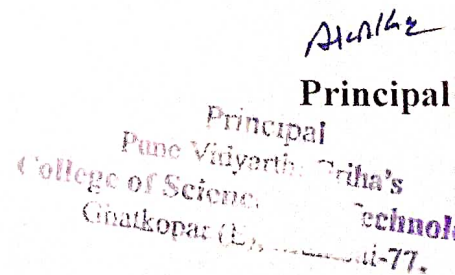 Principal
Principal
Pune Vidyarthi Griha's
College of Science Technol
Ghatkopar (E), -77.